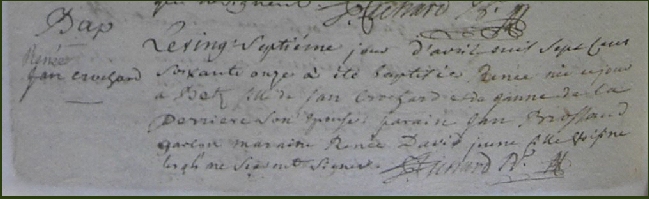 Bap
Renée
Jan crochard
Le ving Septiéme jour d'avril mil Sept Cent
Soixante onze a été baptisée Renée née ce jour
à fille de Jan Crochard et de janne de La
Derriere Son epouse parain Jan Brossaud
garcon maraine Renée David jeune fille
ne Signer Richard